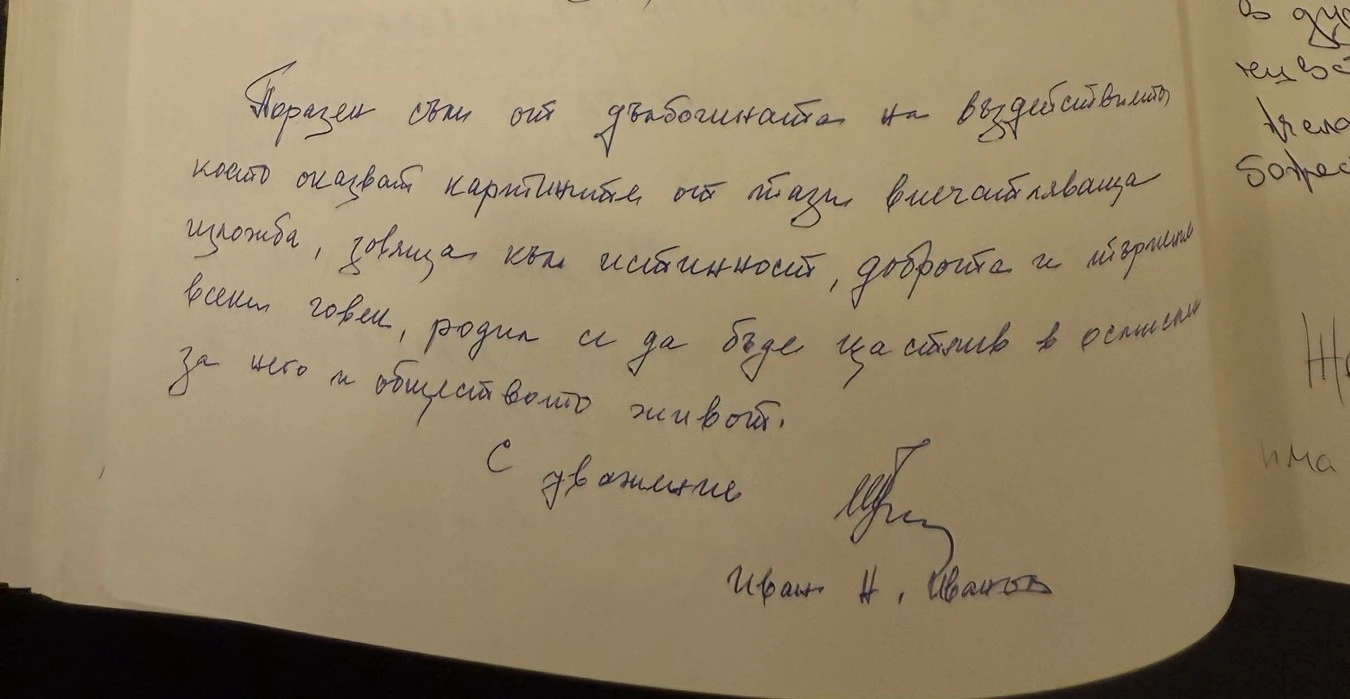 Поразен съм от дълбочината на въздействието,
което оказват картините от тази впечатляваща
изложба, зовяща към истинност, доброта и
всеки човек, родил се да бъде щастлив в
за него и обществото живот.
С уважение
Иван Н. Иванов
има